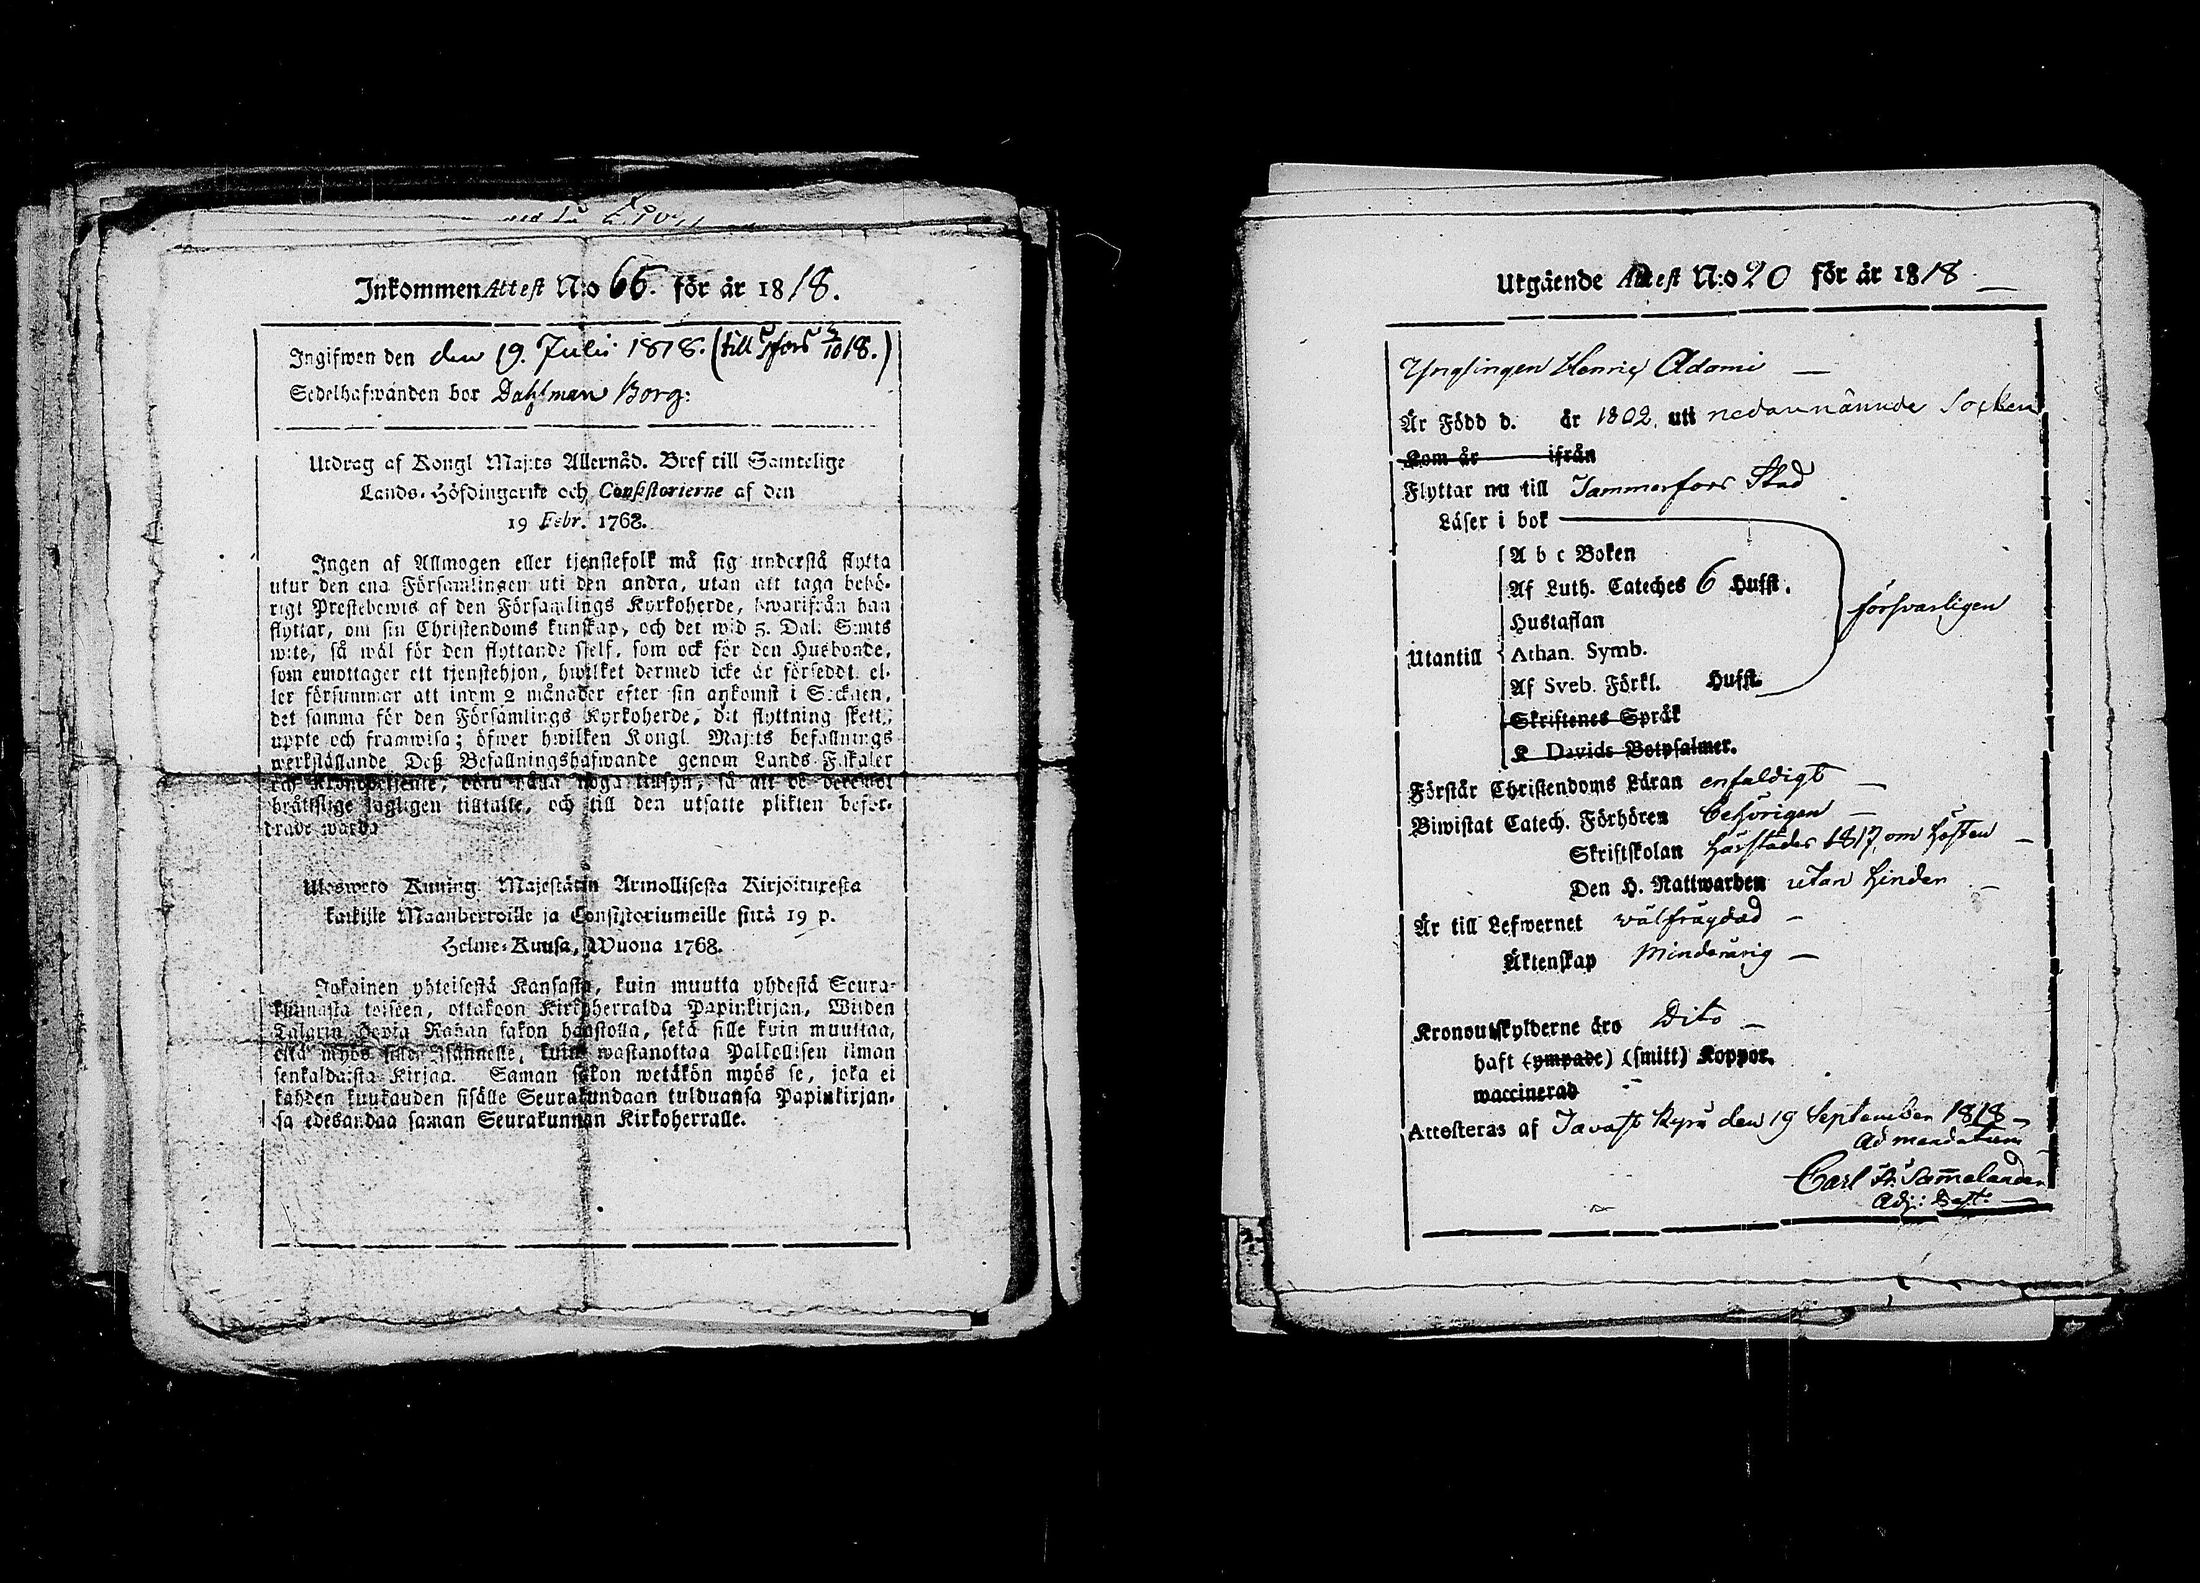 Inkommen Attest N:o 66. för år 1818.
Ingifwen den den 19. Julii 1818. (till fors 5/10 18.)
Sedelhafwanden bor Dahlman Borg:
Utdrag af Kongl Maj:ts Allernåd. Bref till Samtelige
Lands-Höfdingarne och Consistorierne af den
19 Febr. 1768.
Ingen af Allmogen eller tjenstefolk må sig understå flytta
utur den ena Församlingen uti den andra, utan att taga behö-
rigt Prestebewis af den Församlings Kyrkoherde, hwarifrån han
flyttar, om sin Christendoms kunskap, och det wid 5. Dal: S:mts
wite, så wäl för den flyttande sjelf, som ock för den Husbonde,
som emottager ett tjenstehjon, hwilket dermed icke är förseddt, el-
ler försummar att inom 2 månader efter sin ankomst i Socknen,
det samma för den Församlings Kyrkoherde, dit flyttning skett,
uppte och framwisa; öfwer hwilken Kongl. Maj:ts befallnings
werkställande Deß Befallningshafwande genom Lands-Fiskaler
och Kronobetjente, böra hålla noga tillsyn, så att de deremot
bråttslige lagligen tilltalte, och till den utsatte plikten befor-
drade warda
Ulosweto Kuning. Majestätin Armollisesta Kirjoituxesta
kaikille Maanherroille ja Consistoriumeille siitä 19 p.
Helme-Kuusa, Wuona 1768.
Jokainen yhteisestä Kansasta, kuin muutta yhdestä Seura-
kunnasta toiseen, ottakoon Kirkoherralda Papinkirjan, Wiiden
Talarin Hopia Rahan sakon haastolla, sekä sille kuin muuttaa,
että myös sille Isännelle, kuin wastanottaa Palkollisen ilman
senkaldaista Kirjaa. Saman sakon wetäkön myös se, joka ei
kahden kuukauden sisälle Seurakundaan tulduansa Papinkirjan-
sa edesandaa saman Seurakunnan Kirkoherralle.
Utgående Attest N:o 20 för år 1818
Ynglingen Henric Adami
Är Född d. år 1802. uti nedannämde Socken
Kom år ifrån
Flyttar nu till Tammerfors Stad
Läser i bok
A b c Boken
Af Luth. Cateches 6 Hufst.
Hustaflan
försvarligen
Utantill Athan. Symb.
Af Sveb. Förkl. Hufst.
Skriftenes Språk
K. Davids Botpsalmer.
Förstår Christendoms Läran enfaldigt
Biwistat Catech. Förhören behörigen
Skriftskolan härstädes 1817 om hösten
Den H. Nattwarden utan hinder
Är till Lefwernet wälfrägdad
Äktenskap Minderårig
Kronoutskylderne äro Dito
haft (ympade) (smitt) Koppor.
waccinerad
Attesteras af Tavast Kyrö den 19 September 1818
Ad mandatum
Carl Fr. Sam̄elander
Adj: